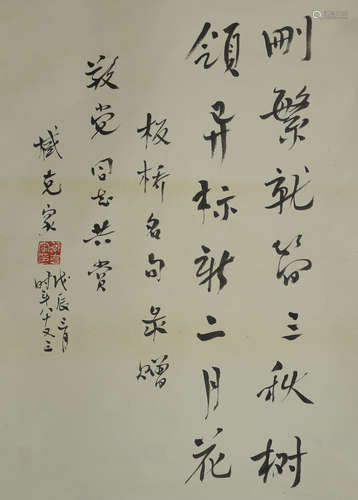 删繁就简三秋树
领异标新二月花
板桥名句录赠
敬党同志共赏
臧克家
戊辰三月
时年八十又三